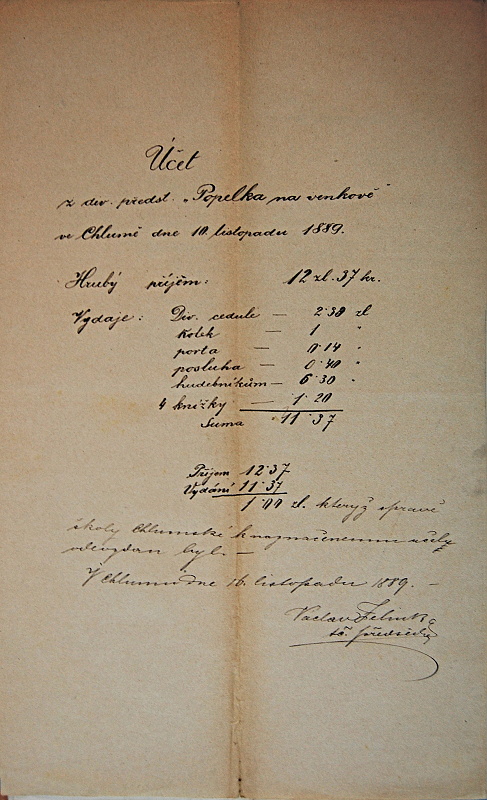 Účet
z div. předst. „Popelka na venkově"
ve Chlumě dne 10. listopadu 1889.
Hrubý příjem: 12 zl. 37 kr.
Vydaje: Div. cedule — 2·38 zl
kolek — 1 "
porta — 0·14 "
posluha — 0·40 "
hudebníkům — 6·30 "
4 knížky — 1·20
Suma 11·37
Příjem 12·37
Vydání 11·37
1·00 zl. kterýž správě
školy Chlumské k naznačenému účely
odevzdán byl. —
V Chlumu dne 16. listopadu 1889. —
Václav
předseda